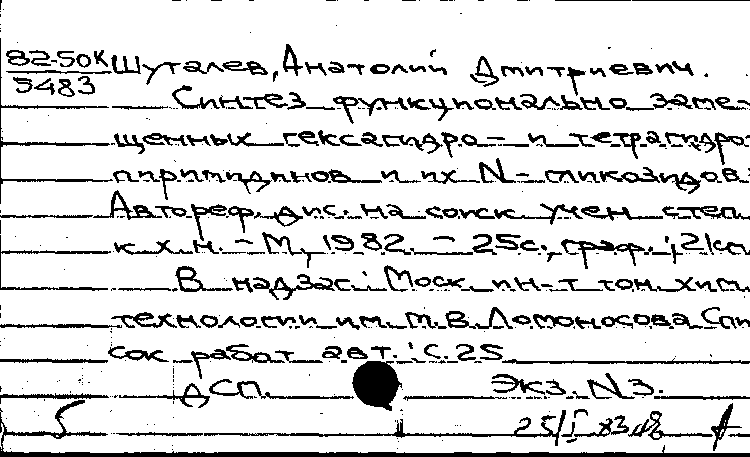 82-50К Шуталев, Анатолий Дмитриевич.
5483
Синтез функционально заме-
щенных гексагидро- и тетрагидро-
пиримидинов и их N-гликозидов:
Автореф. дис. на соиск учен степ
к х. н. - М, 1982. - 25с., граф.; 21см
В надзаг.: Моск. ин-т тон. хим.
технологии им. М.В. Ломоносова. Спи
сок работ авт.: с. 25
ДСП. Экз. N3.
5 25/I 83